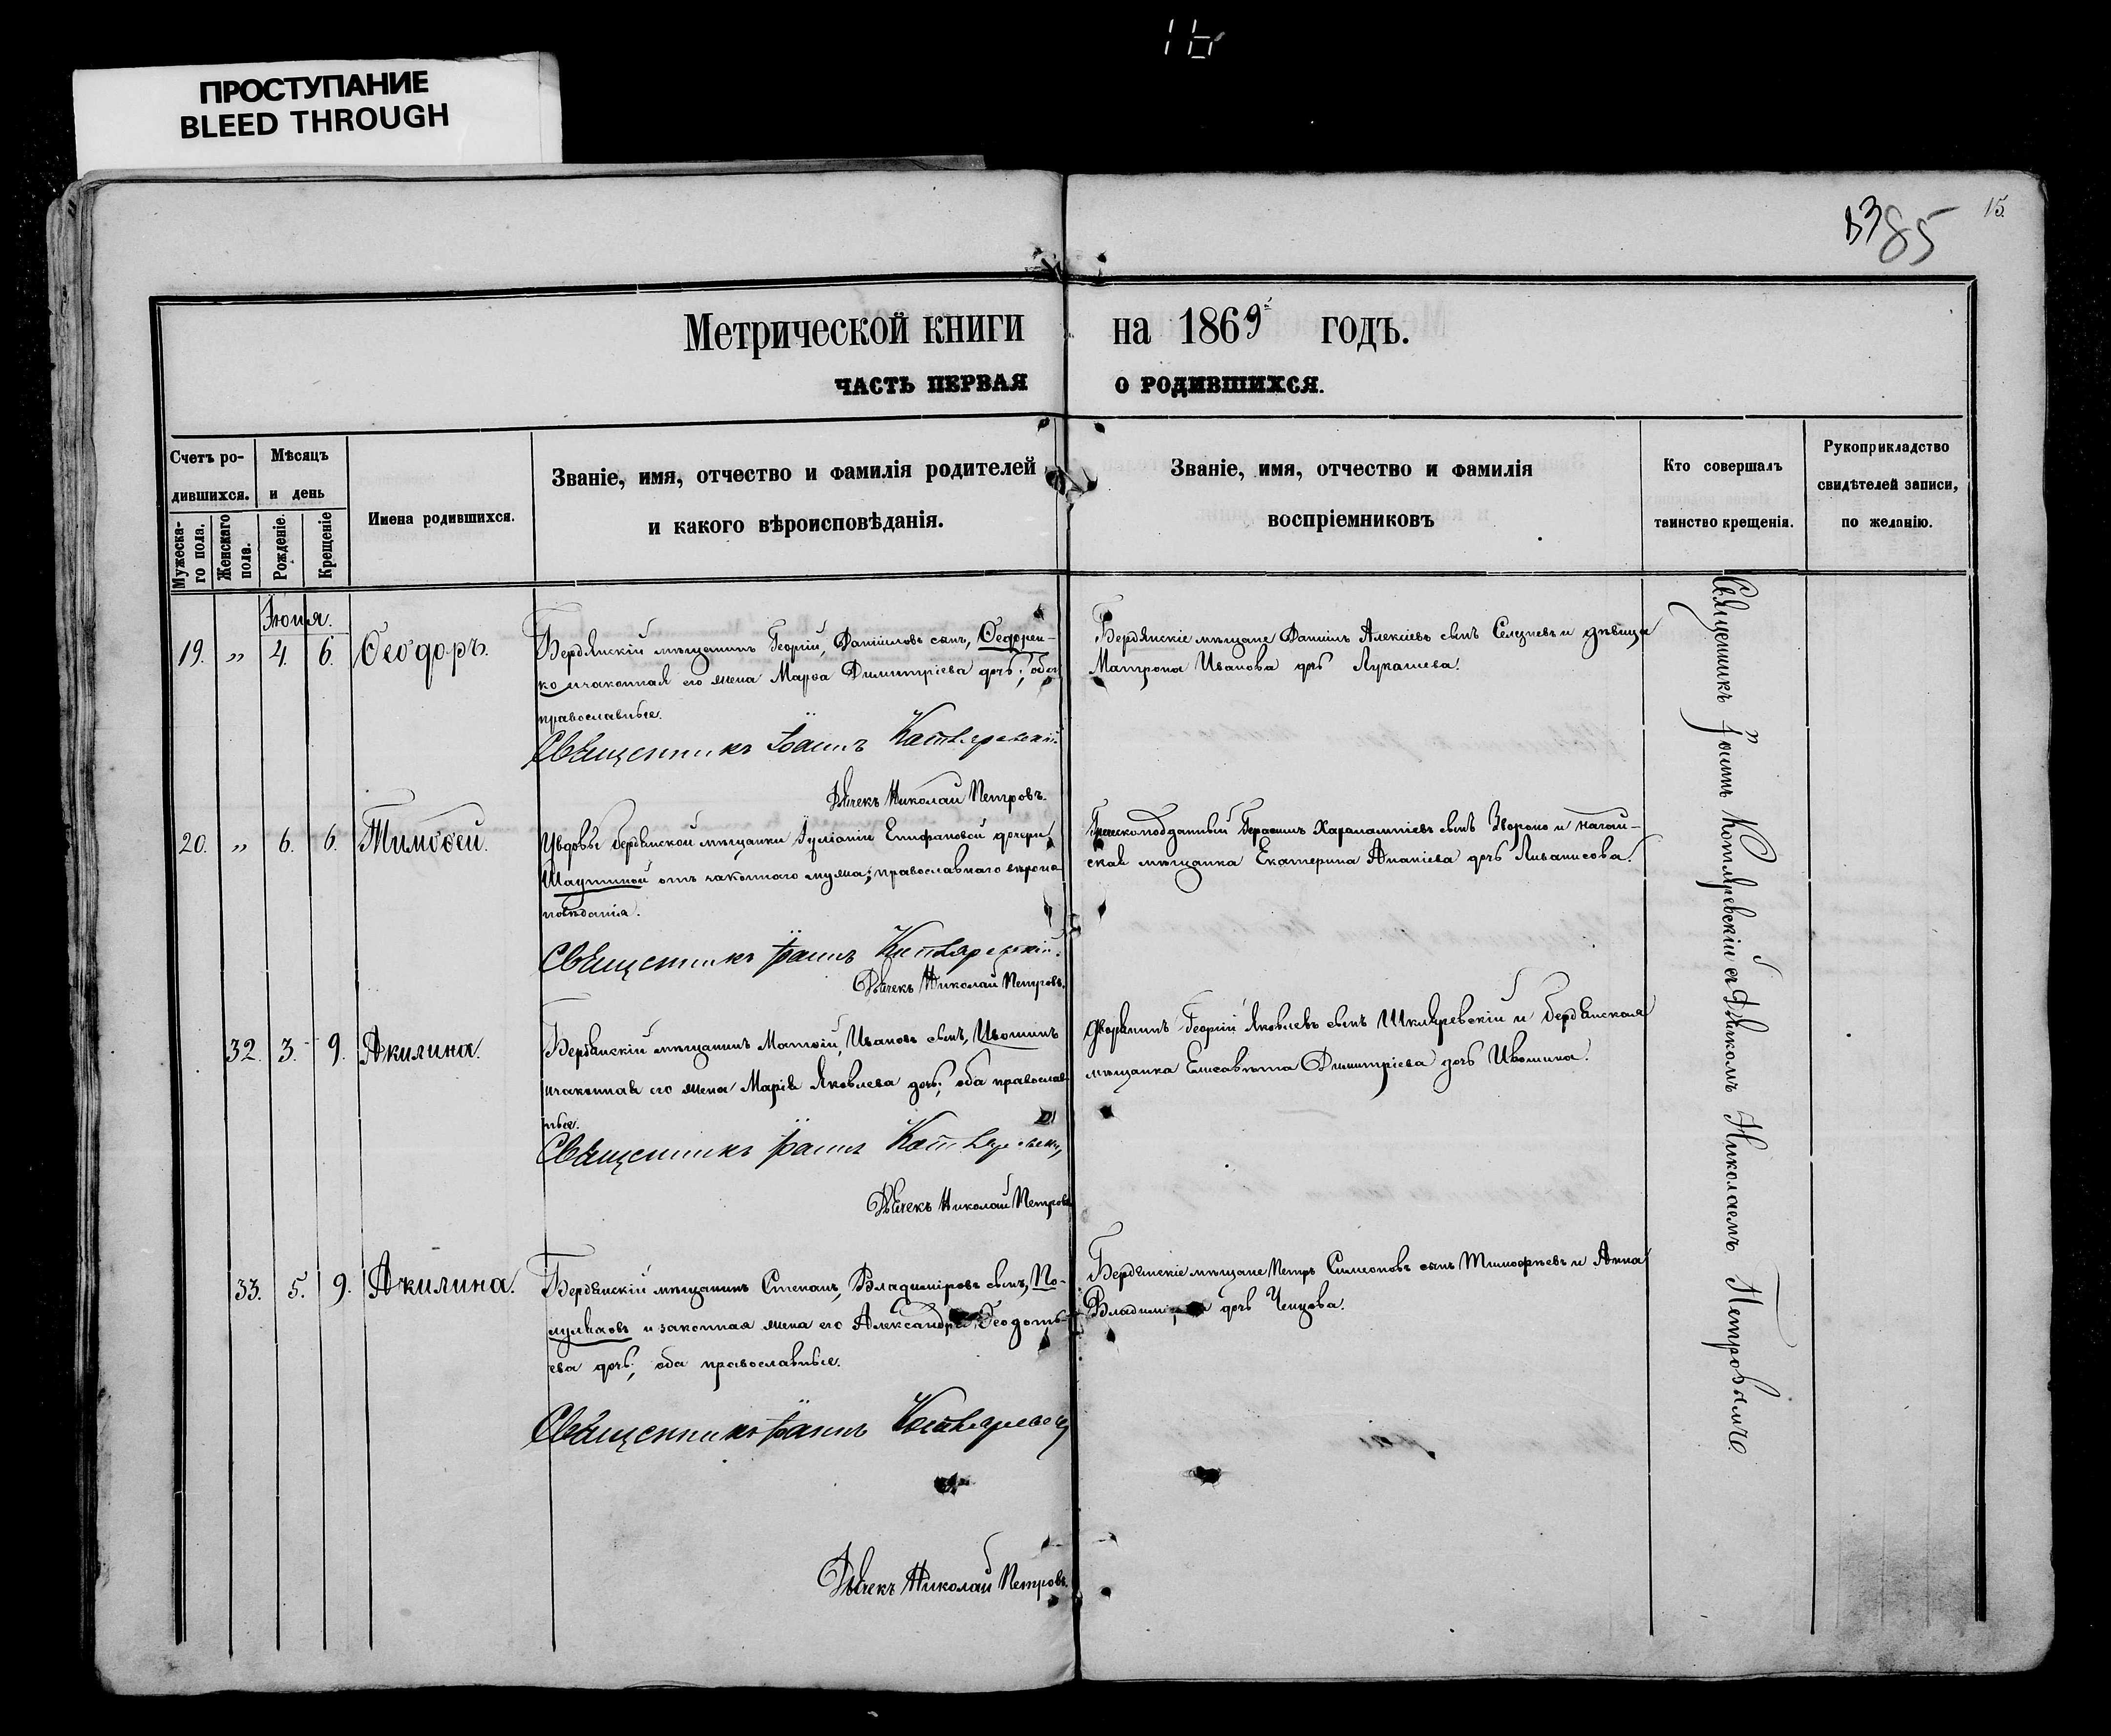 ПРОСТУПАНИЕ
BLEED THROUGH
15.
385
Метрической книги на 1869 годъ.
ЧАСТЬ ПЕРВАЯ О РОДИВШИХСЯ.
Счетъ родившихся.
Мужескаго пола.
Женскаго пола.
Мѣсяцъ и день
Рожденіе.
Крещеніе
Имена родившихся.
Званіе, имя, отчество и фамилія родителей
и какого вѣроисповѣданія.
Званіе, имя, отчество и фамилія
воспріемниковъ
Кто совершалъ
таинство крещенія.
Рукоприкладство
свидѣтелей записи,
по желанію.
Іюня.
19. " 4. 6. Ѳеодоръ.
Бердянскій мѣщанинъ Георгій, Даніиловъ сынъ, Ѳедорен-
ко и законная его жена Марѳа Димитріева дочь; оба
православные.
Священникъ Іоаннъ Котляревскій
Дьячекъ Николай Петровъ.
Бердянскіе мѣщане Даніилъ Алексіевъ сынъ Селезневъ и дѣвица
Матрона Иванова дочь Лукашева.
20. " 6. 6. Тимоѳей.
У вдовы бердянской мѣщанки Іуліаніи Епифановой дочери
отъ законнаго мужа; православнаго вѣроис-
повѣданія.
Священникъ Іоаннъ Котляревскій.
Дьячекъ Николай Петровъ.
Греческоподданный Герасимъ Харалампіевъ сынъ и ногай-
ская мѣщанка Екатерина Ананіева дочь
32. 3. 9. Акилина.
Бердянскій мѣщанинъ Матѳій, Ивановъ сынъ, Ивошинъ
и законная его жена Марія Яковлева дочь; оба православ-
ные.
Священникъ Іоаннъ Котляревскій
Дьячекъ Николай Петровъ
Дворянинъ Георгій Яковлевъ сынъ Шкляревскій и бердянская
мѣщанка Елисавета Димитріева дочь Ивошина.
33. 5. 9. Акилина.
Бердянскій мѣщанинъ Стефанъ, Владиміровъ сынъ, По-
луляховъ и законная жена его Александра Ѳеодоть-
ева дочь; оба православные.
Священникъ Іоаннъ Котляревскій
Дьячекъ Николай Петровъ.
Бердянскіе мѣщане Петръ Симеоновъ сынъ Тимофѣевъ и Анна
дочь Чепцова.
Священникъ Іоаннъ Котляревскій съ Дьячкомъ Николаемъ Петровымъ.